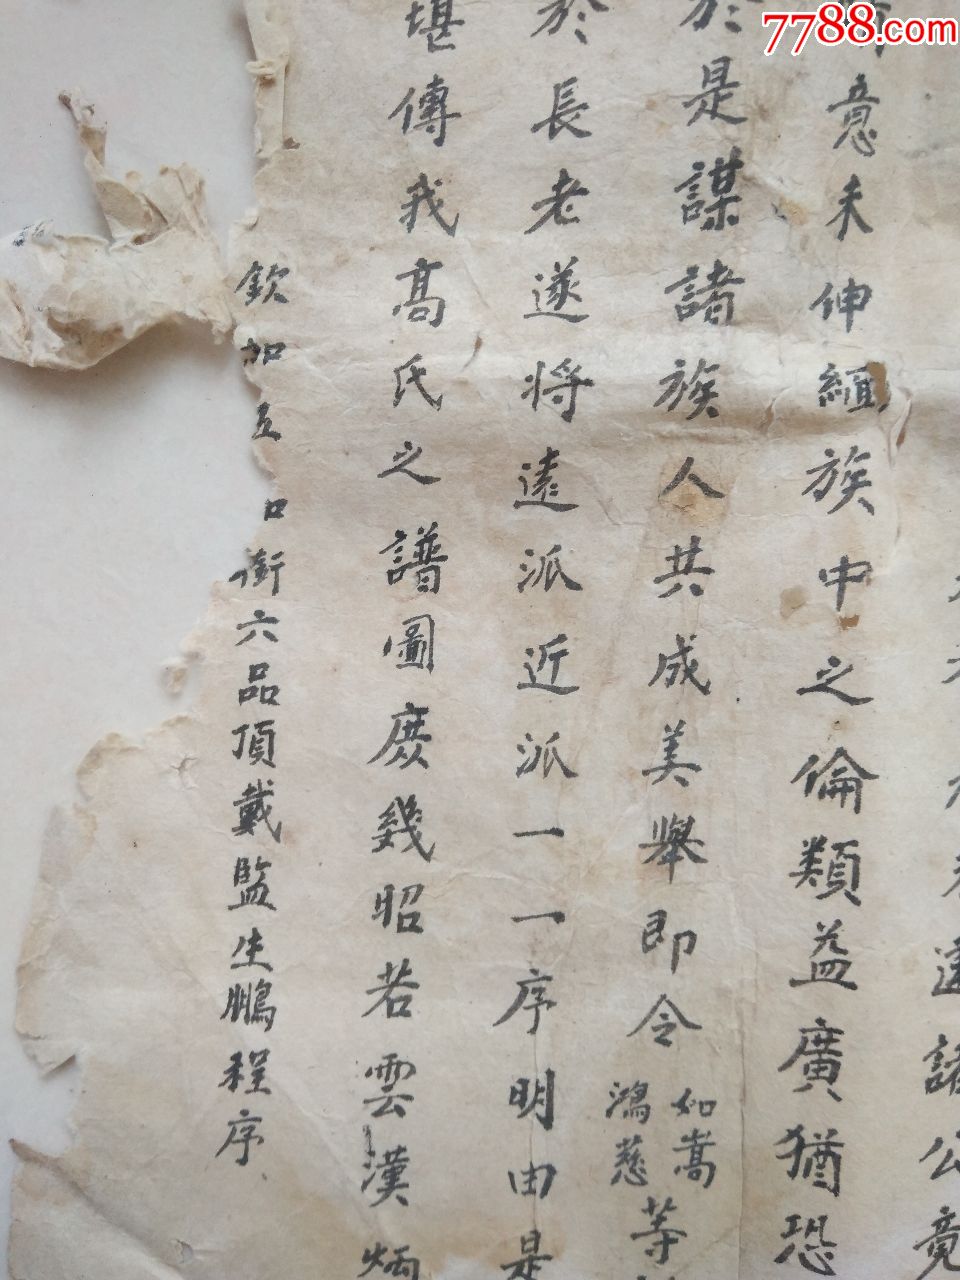 7788.com
遠諸公竟
意未伸緬族中之倫類益廣猶恐
於是謀諸族人共成美舉即令如嵩鴻慈等
於長老遂將遠派近派一一序明由是
堪傳我高氏之譜圖庶幾昭若雲漢炳
欽加五口銜六品頂戴監生鵬程序